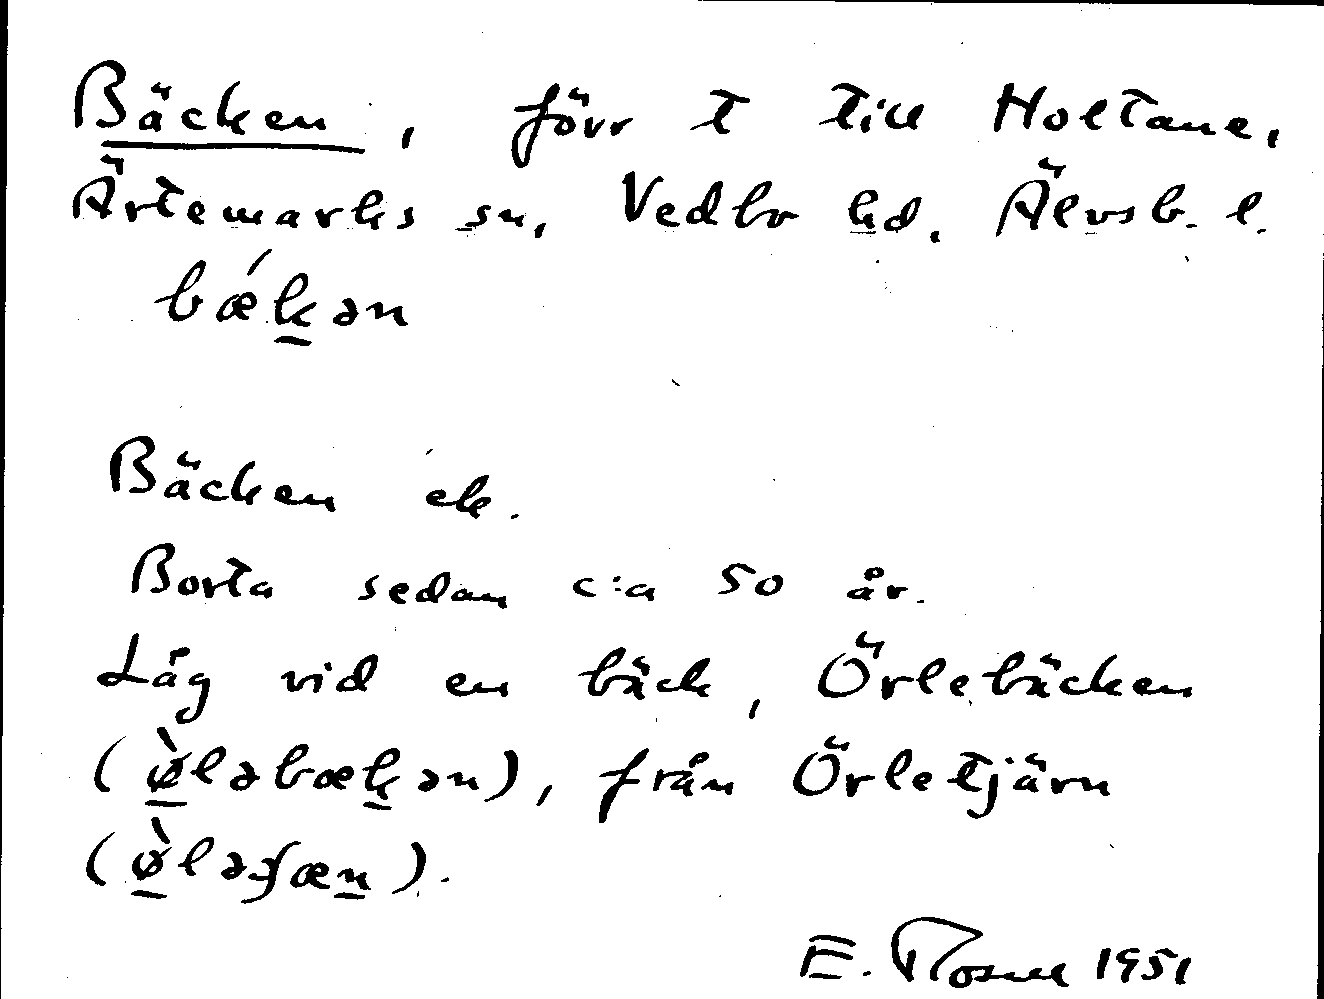 Bäcken, förr t till Holtane,
Ärtemarks sn, Vedbo hd. Älvsb. l.
bǽkən
Bäcken ek.
Borta sedan c:a 50 år.
Låg vid en bäck, Örlebäcken
(ø̀ləbækən), från Örletjärn
(ø̀ləʃæn).
E. 1951